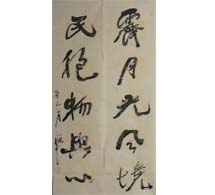 霽月光風境
民胞物與心